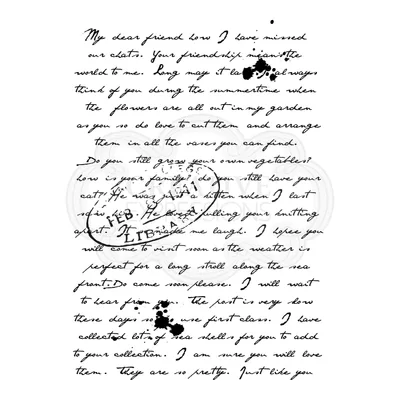 My dear friend how I have missed
our chats. Your friendship means the
world to me. Long may it last. I always
think of you durng the summertime when
the flowers are all out in my garden
as you so do love to cut them and arrange
them in all the vases you can find.
Do you still grow your own vegetables?
how is your family? do you still have your
cat? He was just a kitten when I last
saw him. He loved pulling your knitting
apart. It made me laugh. I hpee you
will come to visit soon as the weather is
perfect for a long stroll along the sea
front. Do come soon please. I will wait
to hear from you. The post is very slow
these days so use first class. I have
collected lots of sea shells for you to add
to your collection. I am sure you will love
them. They are so pretty. Just like you
FEB. 1911
LIBRARY